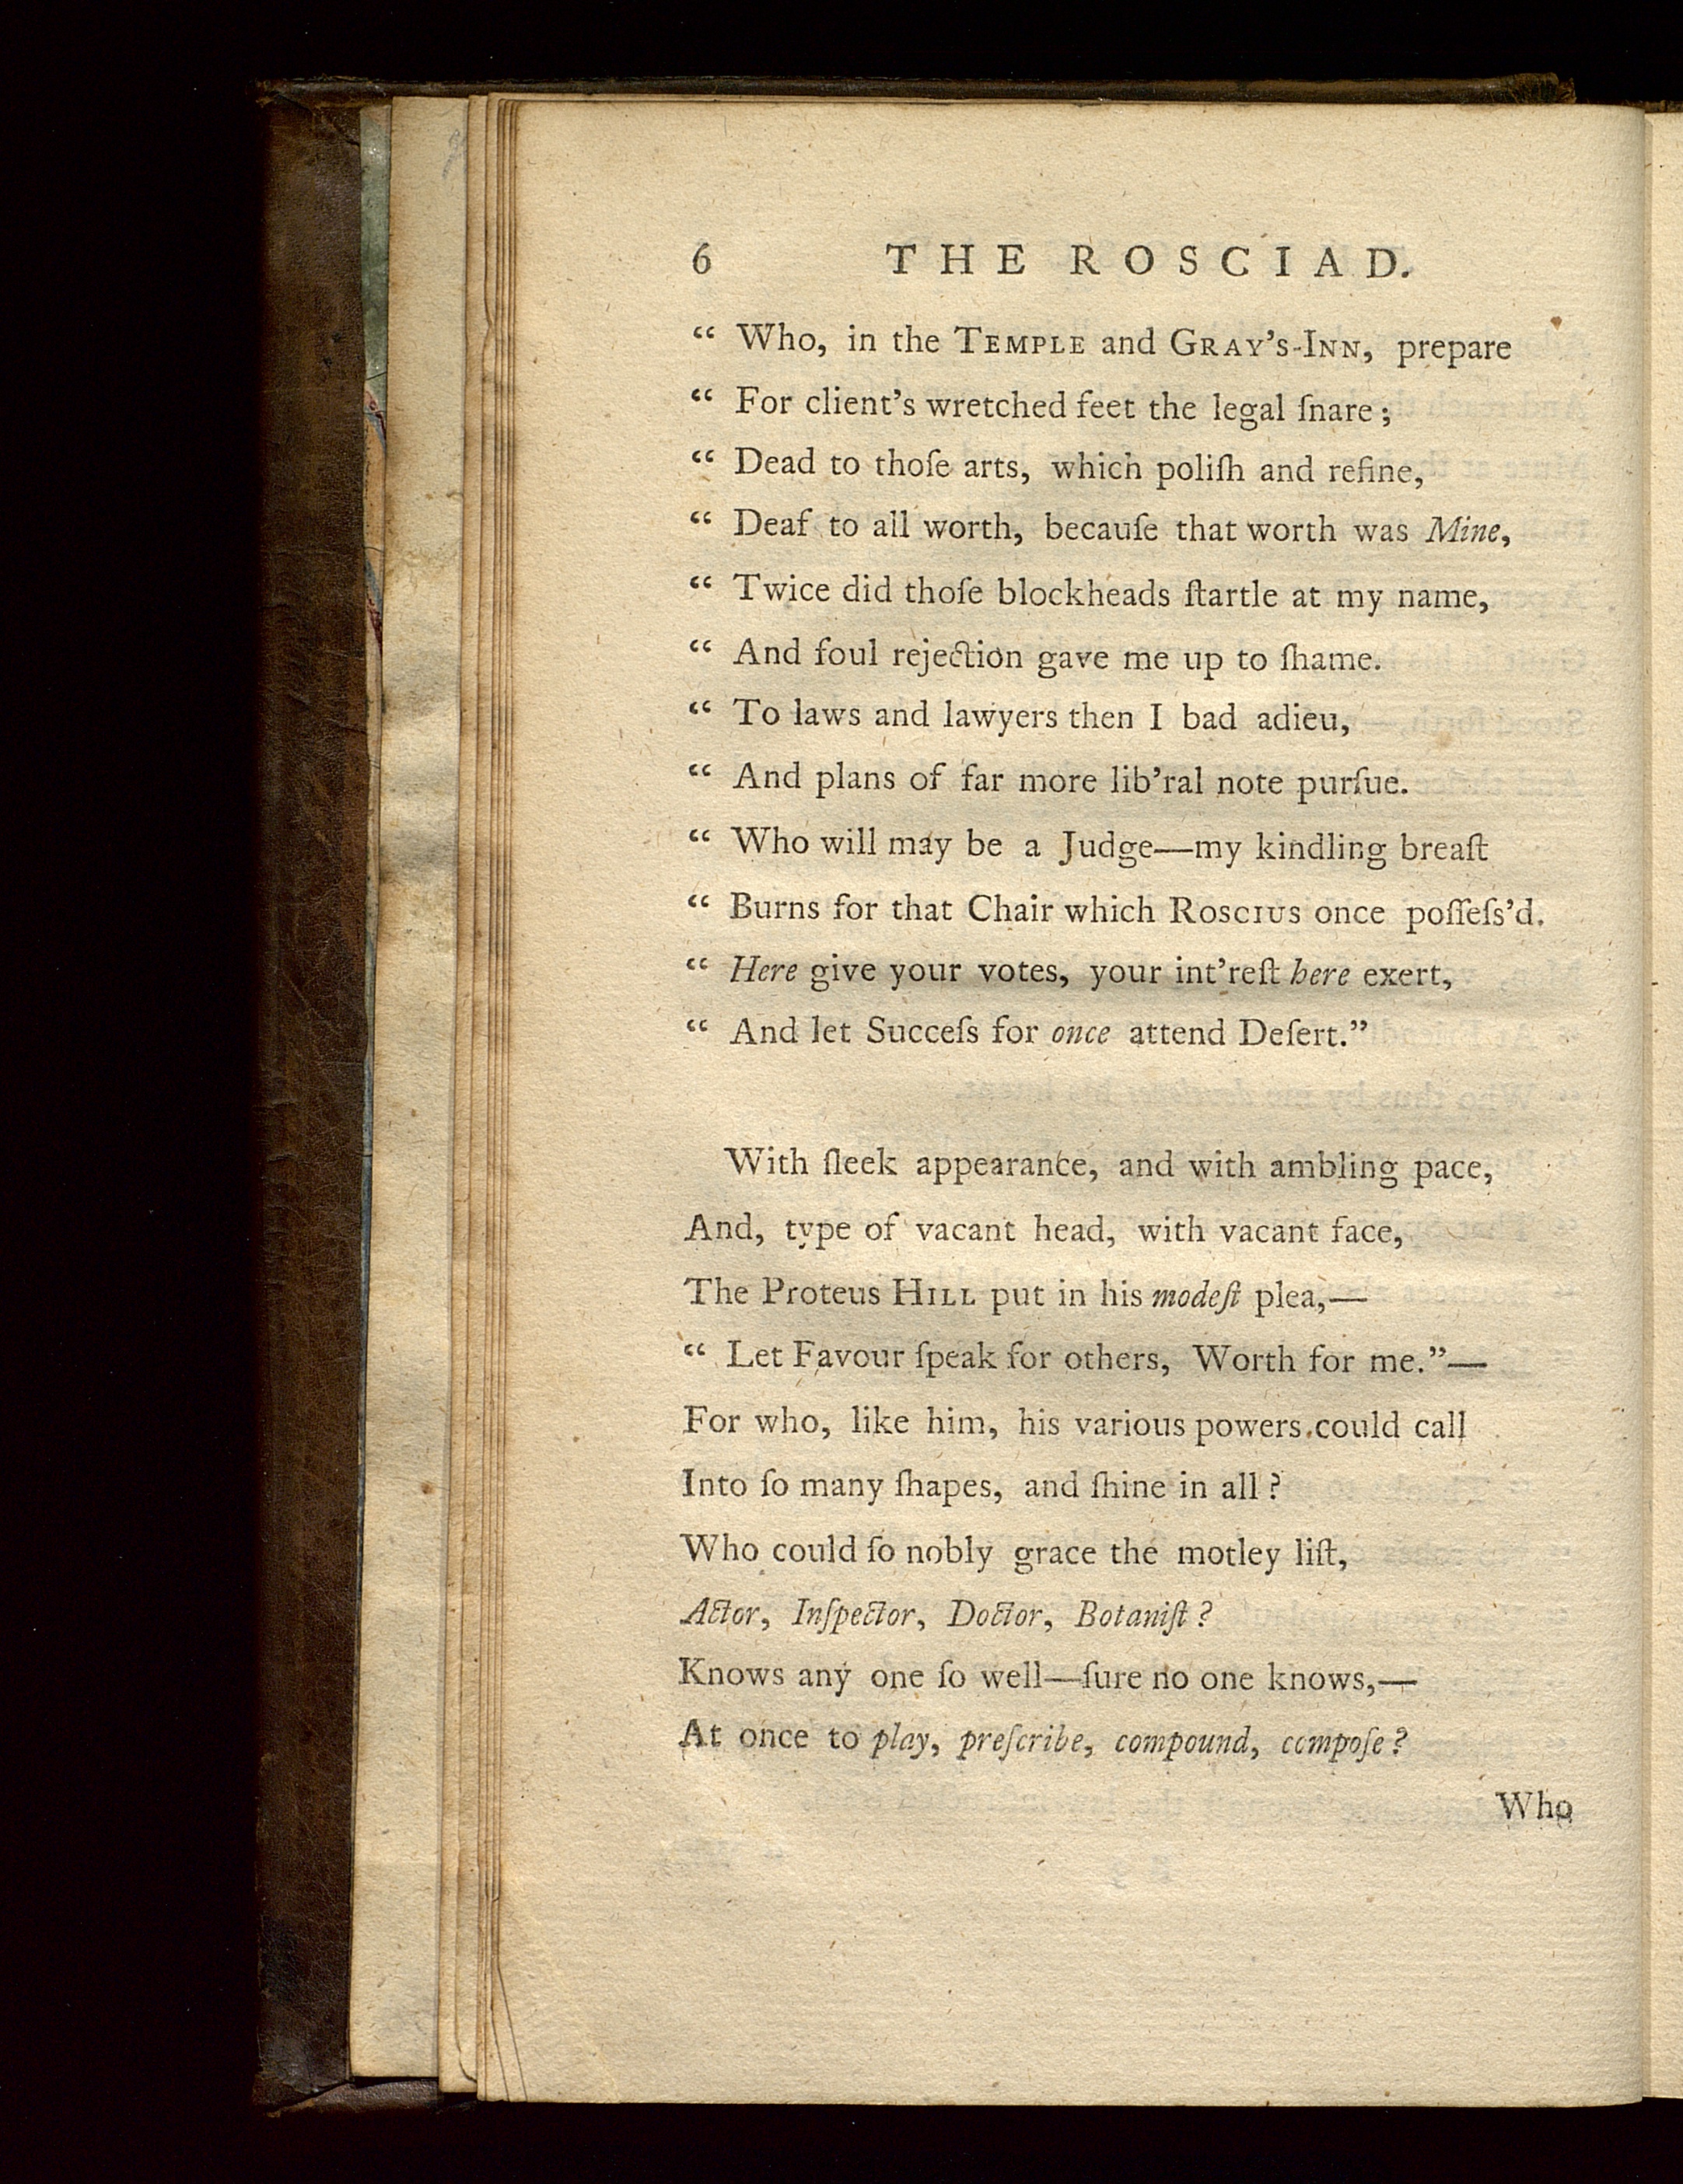 6 THE ROSCIAD.
“ Who, in the TEMPLE and GRAY’S-INN, prepare
“ For client’s wretched feet the legal ſnare ;
“ Dead to thoſe arts, which poliſh and refine,
“ Deaf to all worth, becauſe that worth was Mine,
“ Twice did thoſe blockheads ſtartle at my name,
“ And foul rejection gave me up to ſhame.
“ To laws and lawyers then I bad adieu,
“ And plans of far more lib’ral note purſue.
“ Who will may be a Judge—my kindling breaſt
“ Burns for that Chair which ROSCIUS once poſſeſs’d.
“ Here give your votes, your int’reſt here exert,
“ And let Succeſs for once attend Deſert.”
With ſleek appearance, and with ambling pace,
And, type of vacant head, with vacant face,
The Proteus HILL put in his modeſt plea,—
“ Let Favour ſpeak for others, Worth for me.”—
For who, like him, his various powers could call
Into ſo many ſhapes, and ſhine in all ?
Who could ſo nobly grace the motley liſt,
Actor, Inſpector, Doctor, Botaniſt ?
Knows any one ſo well—ſure no one knows,—
At once to play, preſcribe, compound, compoſe ?
Who